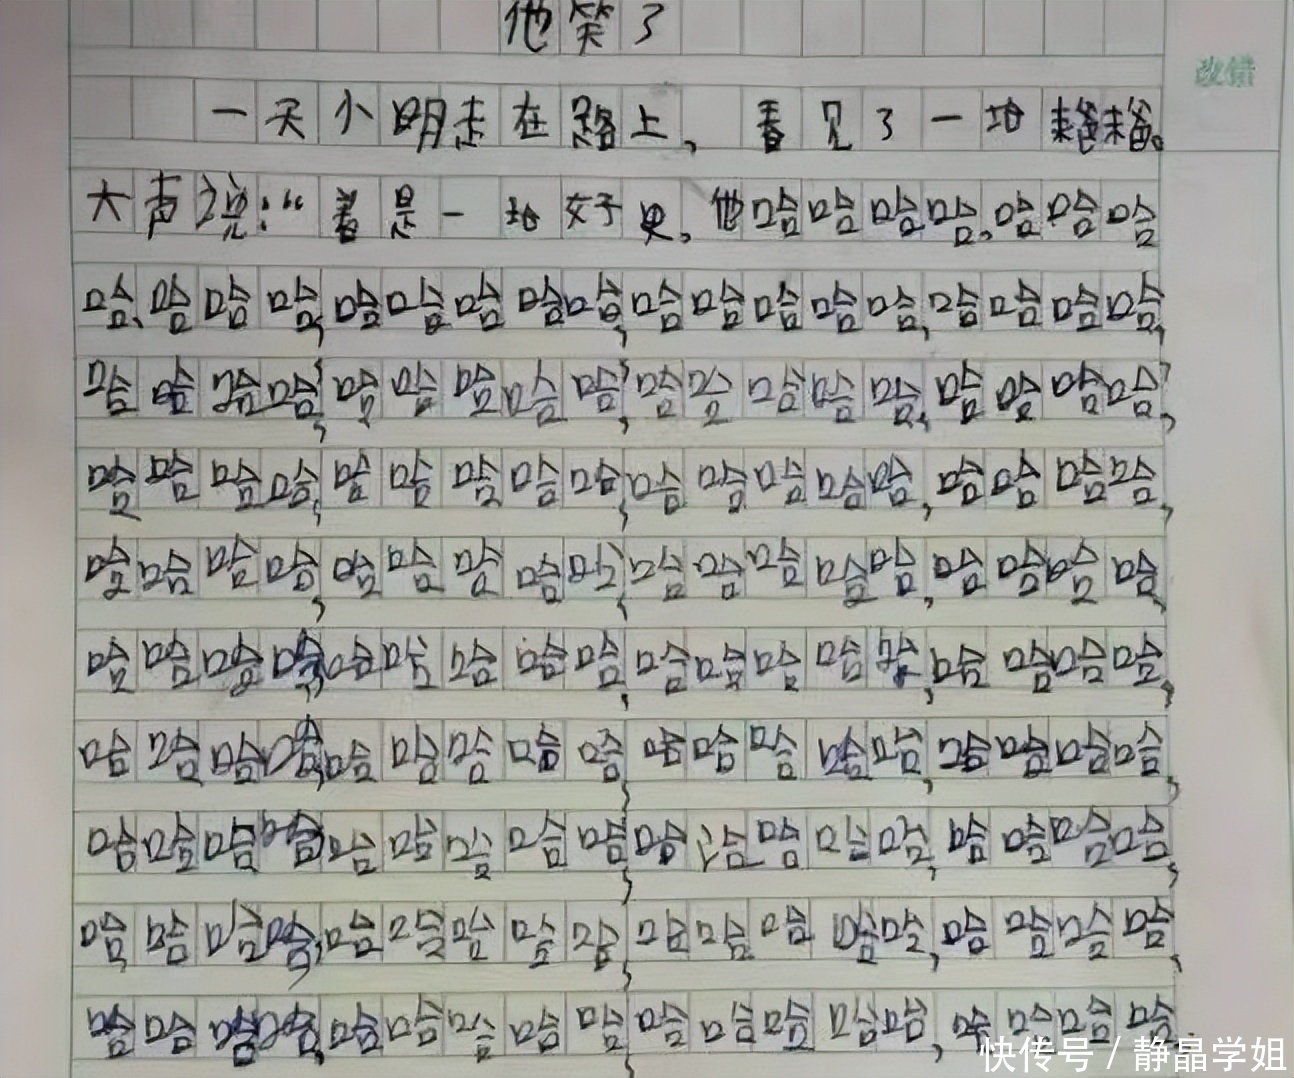 他笑了
改错
一天小明走在路上,看见了一地
大声说:“着是一地好,他哈哈哈哈,哈哈哈
哈、哈哈哈,哈哈哈哈哈,哈哈哈哈哈,哈哈哈哈,
哈哈哈哈,哈哈哈哈哈,哈哈哈哈哈,哈哈哈哈,
哈哈哈哈,哈哈哈哈哈,哈哈哈哈哈,哈哈哈哈,
哈哈哈哈,哈哈哈哈哈,哈哈哈哈哈,哈哈哈哈,
哈哈哈哈,哈哈哈哈哈,哈哈哈哈哈,哈哈哈哈,
哈哈哈哈,哈哈哈哈哈,哈哈哈哈哈,哈哈哈哈,
哈哈哈哈,哈哈哈哈哈,哈哈哈哈哈,哈哈哈哈,
哈哈哈哈,哈哈哈哈哈,哈哈哈哈哈,哈哈哈哈,
哈哈哈哈,哈哈哈哈哈,哈哈哈哈哈,哈哈哈哈
快传号/静晶学姐